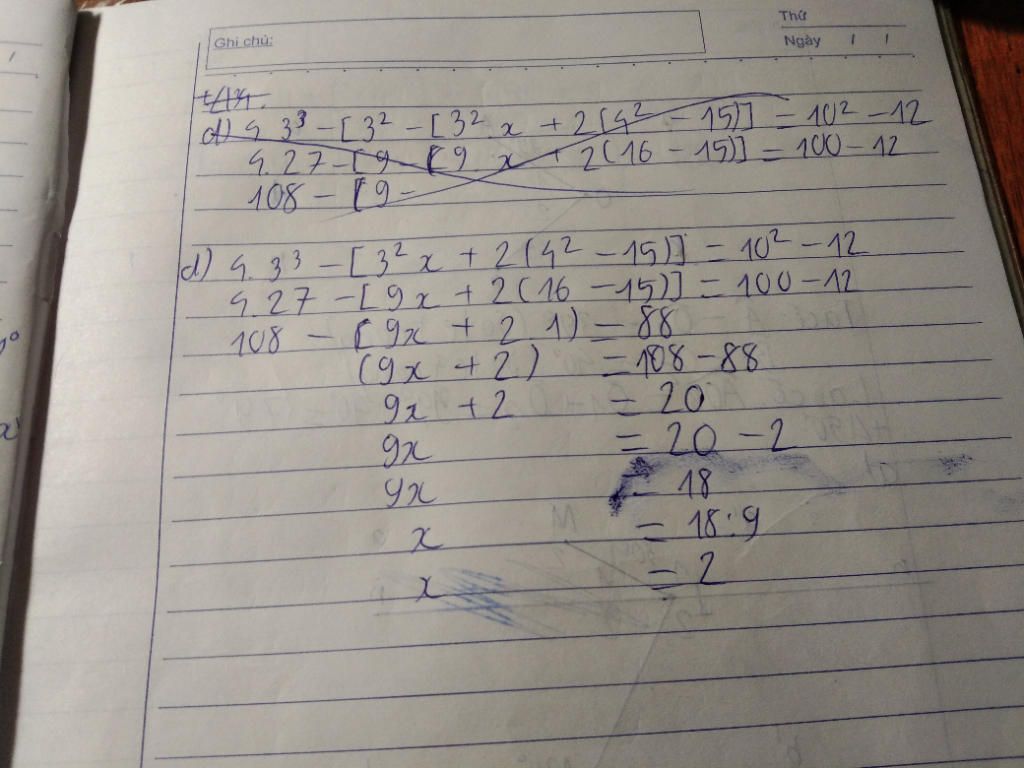 Thứ
Ghi chú:
Ngày / /
d) 4. 3³ - [3² - [3² x + 2 [4² - 15)] = 10² - 12
4. 27 - [9 - [9 x + 2(16 - 15)] = 100 - 12
108 - [9 -
d) 4. 3³ - [3² x + 2(4² - 15)] = 10² - 12
4. 27 - [9x + 2(16 - 15)] = 100 - 12
108 - (9x + 2 1) = 88
(9x + 2) = 108 - 88
9x + 2 = 20
9x = 20 - 2
9x = 18
x = 18 : 9
x = 2